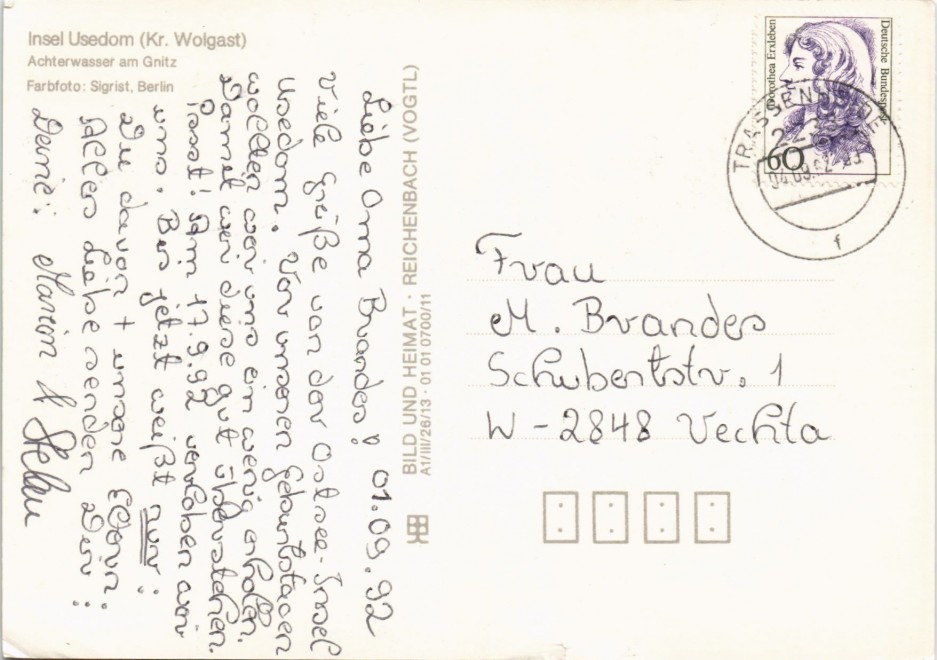 Insel Usedom (Kr. Wolgast)
Achterwasser am Gnitz
Farbfoto: Sigrist, Berlin
01.09.92
Liebe Oma Brandes!
Viele Grüße von der Ostsee-Insel
Usedom. Vor unseren Geburtstagen
wollten wir uns ein wenig erholen.
Damit wir diese gut überstehen.
Passt! Am 17.9.92 verloben wir
uns. Bis jetzt weißt nur:
Du davon + unsere Eltern.
Alles Liebe senden Dir:
Deine: Marion &
BILD UND HEIMAT · REICHENBACH (VOGTL)
A1/III/26/13 · 01 01 0700/11
Dorothea Erxleben
Deutsche Bundespost
60
TRASSENHEIDE
04.09.92
f
Frau
M. Brandes
Schubertstr. 1
W-2848 Vechta